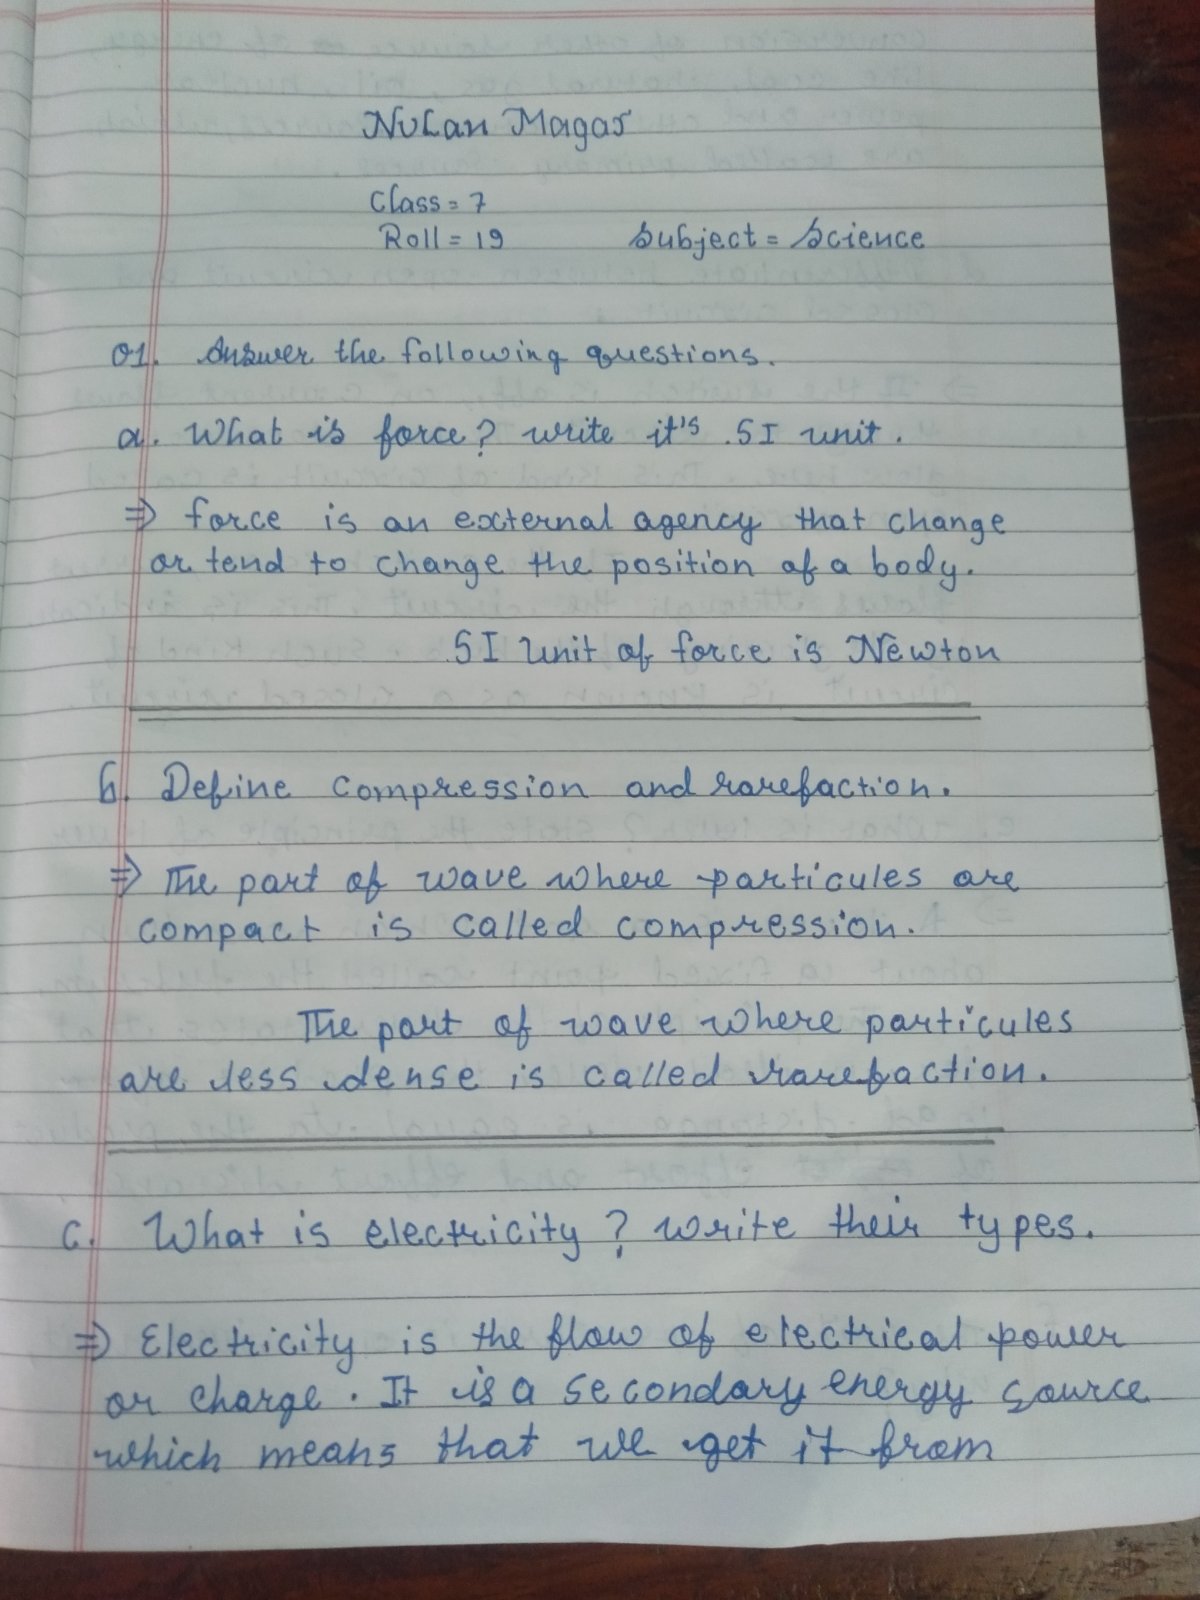 Class = 7
Roll = 19 Subject = Science
01. Answer the following questions.
a. What is force? write it's SI unit.
⇒ force is an external agency that change
or tend to change the position of a body.
SI Unit of force is Newton
b. Define compression and rarefaction.
⇒ The part of wave where particules are
compact is called compression.
The part of wave where particules
are less dense is called rarefaction.
c. What is electricity? write their types.
⇒ Electricity is the flow of electrical power
or charge. It is a secondary energy source
which means that we get it from